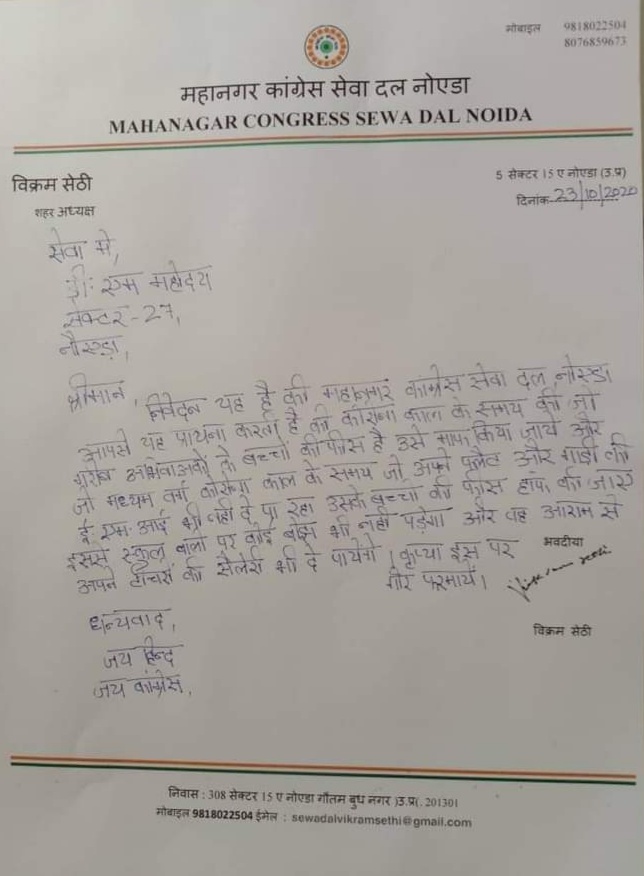 मोबाइल 9818022504
8076859673
महानगर कांग्रेस सेवा दल नोएडा
MAHANAGAR CONGRESS SEWA DAL NOIDA
विक्रम सेठी
शहर अध्यक्ष
5 सेक्टर 15 ए नोएडा (उ.प्र)
दिनांक 23/10/2020
सेवा मे,
डी: एम महोदय
सेक्टर - 27,
नौएडा,
श्रीमान, निवेदन यह है की महानगर कांग्रेस सेवा दल नोएडा
आपसे यह पाथना करता है की कोरोना काल के समय की जो
गरीब के बच्चो की फीस है उसे माफ किया जाये और
जो मध्यम वर्ग कोरोना काल के समय जो अपने फ्लैट और गाडी की
ई. एम. आई भी नही दे पा रहा उसके बच्चो की फीस हाफ की जाए
इससे स्कूल वालो पर कोई बोझ भी नही पड़ेगा और वह आराम से
अपने टीचर्स की सैलेरी भी दे पायेंगे। कृप्या इस पर
गौर फरमाये।
भवदीया
विक्रम सेठी
धन्यवाद,
जय हिन्द
जय कांग्रेस,
निवास : 308 सेक्टर 15 ए नोएडा गौतम बुध नगर )उ.प्र(. 201301
मोबाइल 9818022504 ईमेल : sewadalvikramsethi@gmail.com